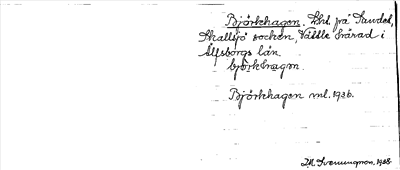 Björkhagen. Lht. på Sandel,
Skallsjö socken, Vättle härad i
Älfsborgs län
björkhagen
Björkhagen ml. 1926.
1928